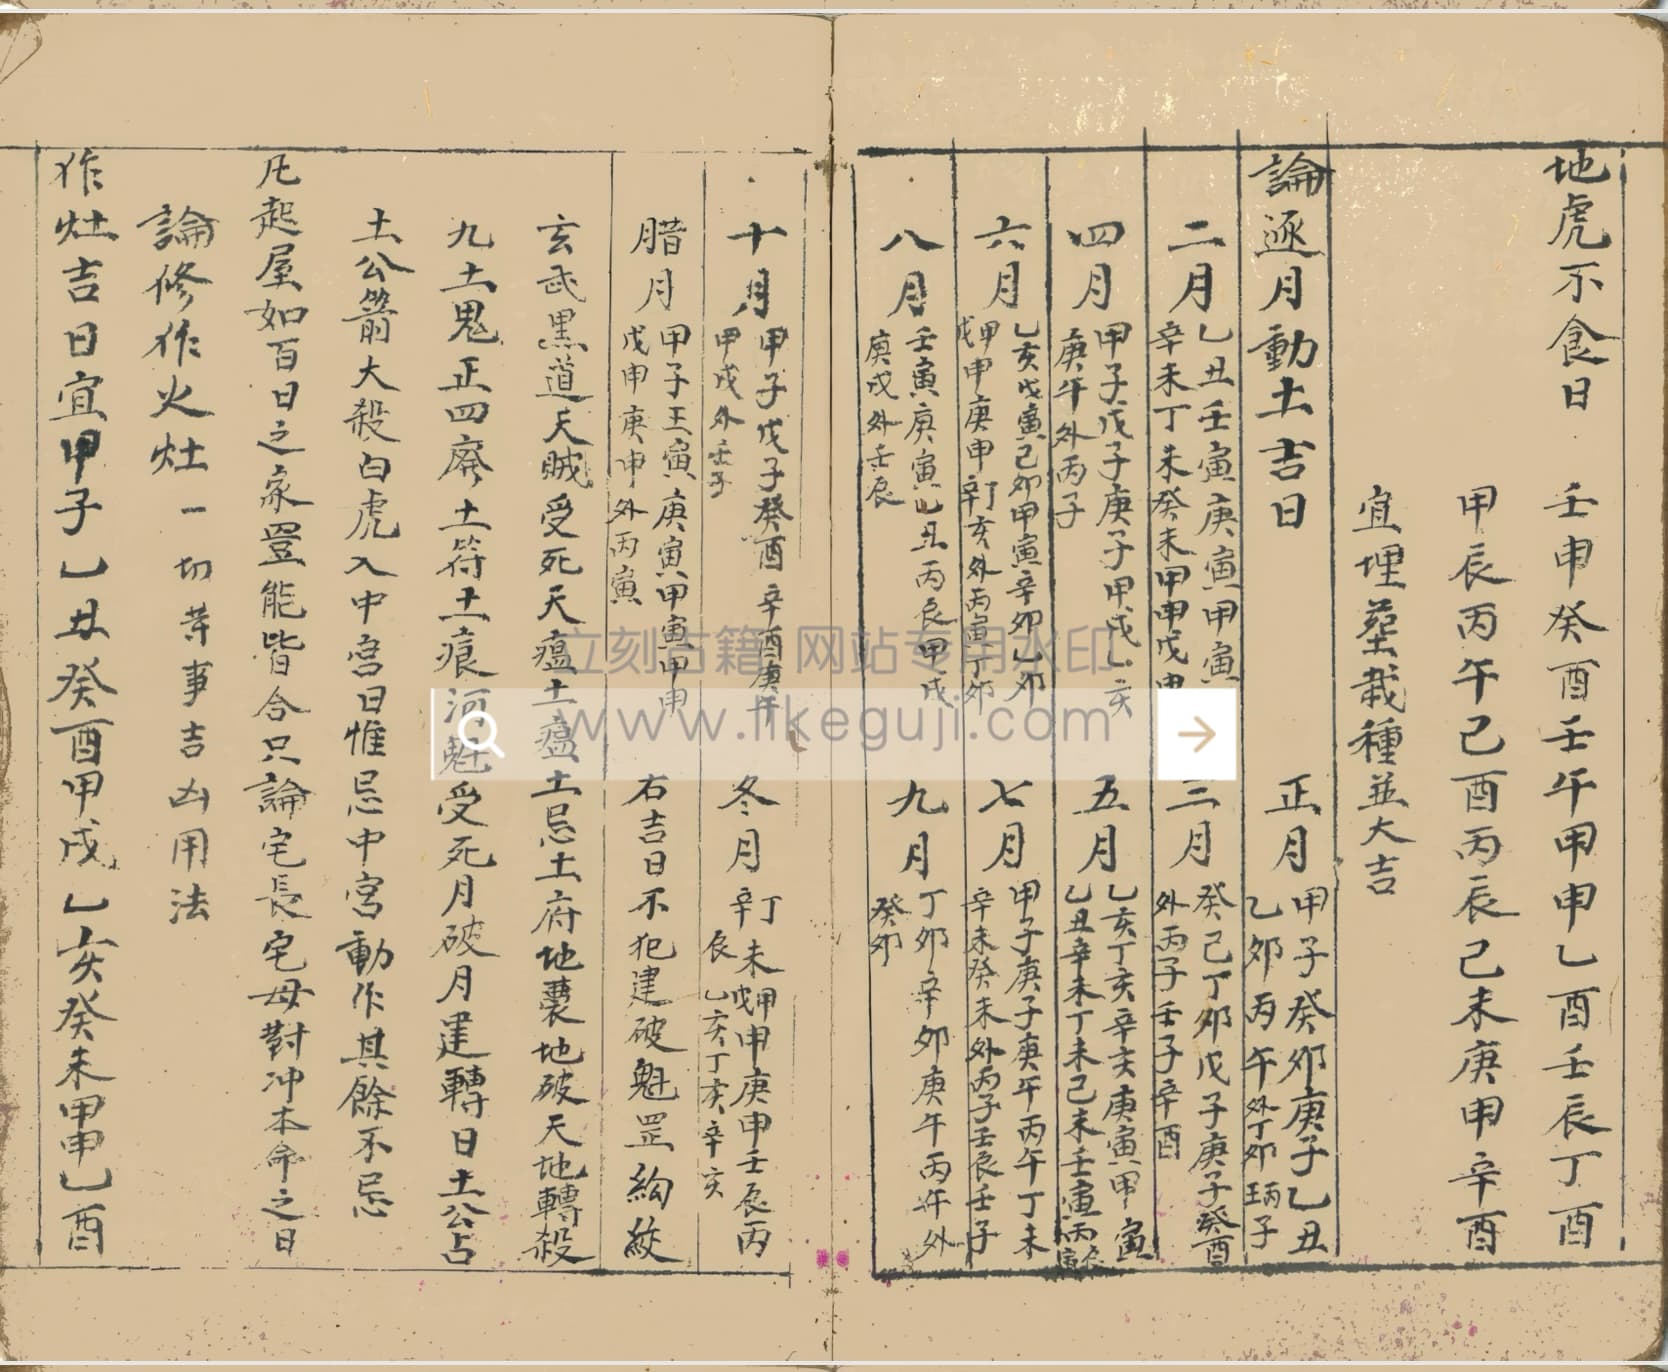 地虎不食日 壬申癸酉壬午甲申乙酉壬辰丁酉
甲辰丙午己酉丙辰己未庚申辛酉
宜埋塟栽種並大吉
論逐月動土吉日
正月 甲子癸卯庚子乙丑
乙卯丙午外丁卯壬子丙子
二月 乙丑壬寅庚寅甲寅
辛未丁未癸未甲申戊申
三月 癸己丁卯戊子庚子癸酉
外丙子壬子辛酉
四月 甲子戊子庚子甲戌乙亥
庚午外丙子
五月 乙亥丁亥辛亥庚寅甲寅
乙丑辛未丁未己未壬寅丙寅
六月 乙亥戊寅己卯甲寅辛卯乙卯
甲申庚申辛亥外丙寅丁卯
七月 甲子庚子庚午丙午丁未
辛未癸未外丙子壬辰壬子
八月 壬寅庚寅乙丑丙辰甲戌
庚戌外壬辰
九月 丁卯辛卯庚午丙午外
癸卯
十月 甲子戊子癸酉辛酉庚午
甲戌外壬子
冬月 丁未甲申庚申壬辰丙
辰乙亥丁亥辛亥
腊月 甲子壬寅庚寅甲寅甲申
戊申庚申外丙寅
右吉日不犯建破魁罡絇絞
玄武黑道天賊受死天瘟土瘟土忌土府地囊地破天地轉殺
九土鬼正四廢土符土痕河魁受死月破月建轉日土公占
土公箭大殺白虎入中宮日惟忌中宮動作其餘不忌
凡起屋如百日之家豈能皆合只論宅長宅母對冲本命之日
論修作火灶一切等事吉凶用法
作灶吉日宜甲子乙丑癸酉甲戌乙亥癸未甲申乙酉
立刻古籍 网站专用水印
www.likeguji.com